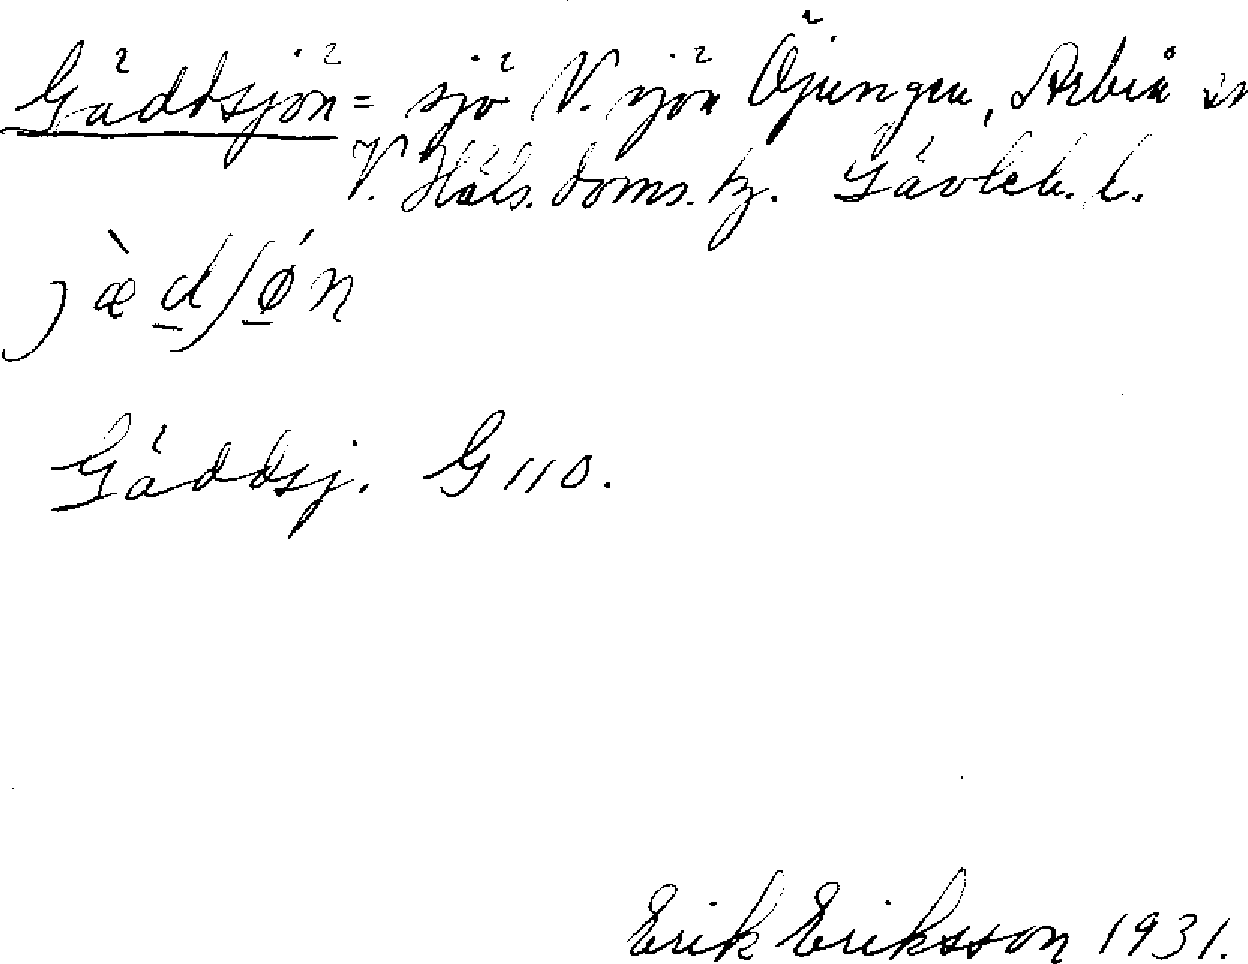 Gäddsjön = sjö V. sjön Öjungen, Arbrå sn
V. Häls. doms. hg. Gävleb. l.
j æ̀ d ʃ ǿ n
Gäddsj. G 110.
Erik Eriksson 1931.